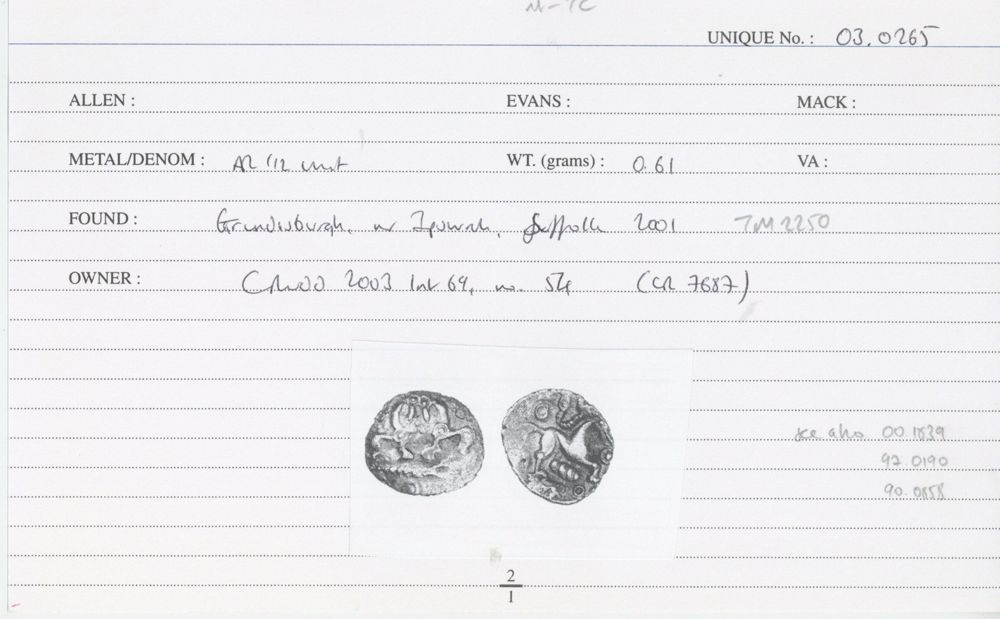 UNIQUE No. : 03.0265
ALLEN : EVANS : MACK :
METAL/DENOM : AR 1/2 unit WT. (grams) : 0.61 VA :
FOUND : Grundisburgh, nr Ipswich, Suffolk 2001 TM 2250
OWNER : 2003 69, no. 54 (CR 7687)
see also 00.1839
92.0190
90.0858
2
1